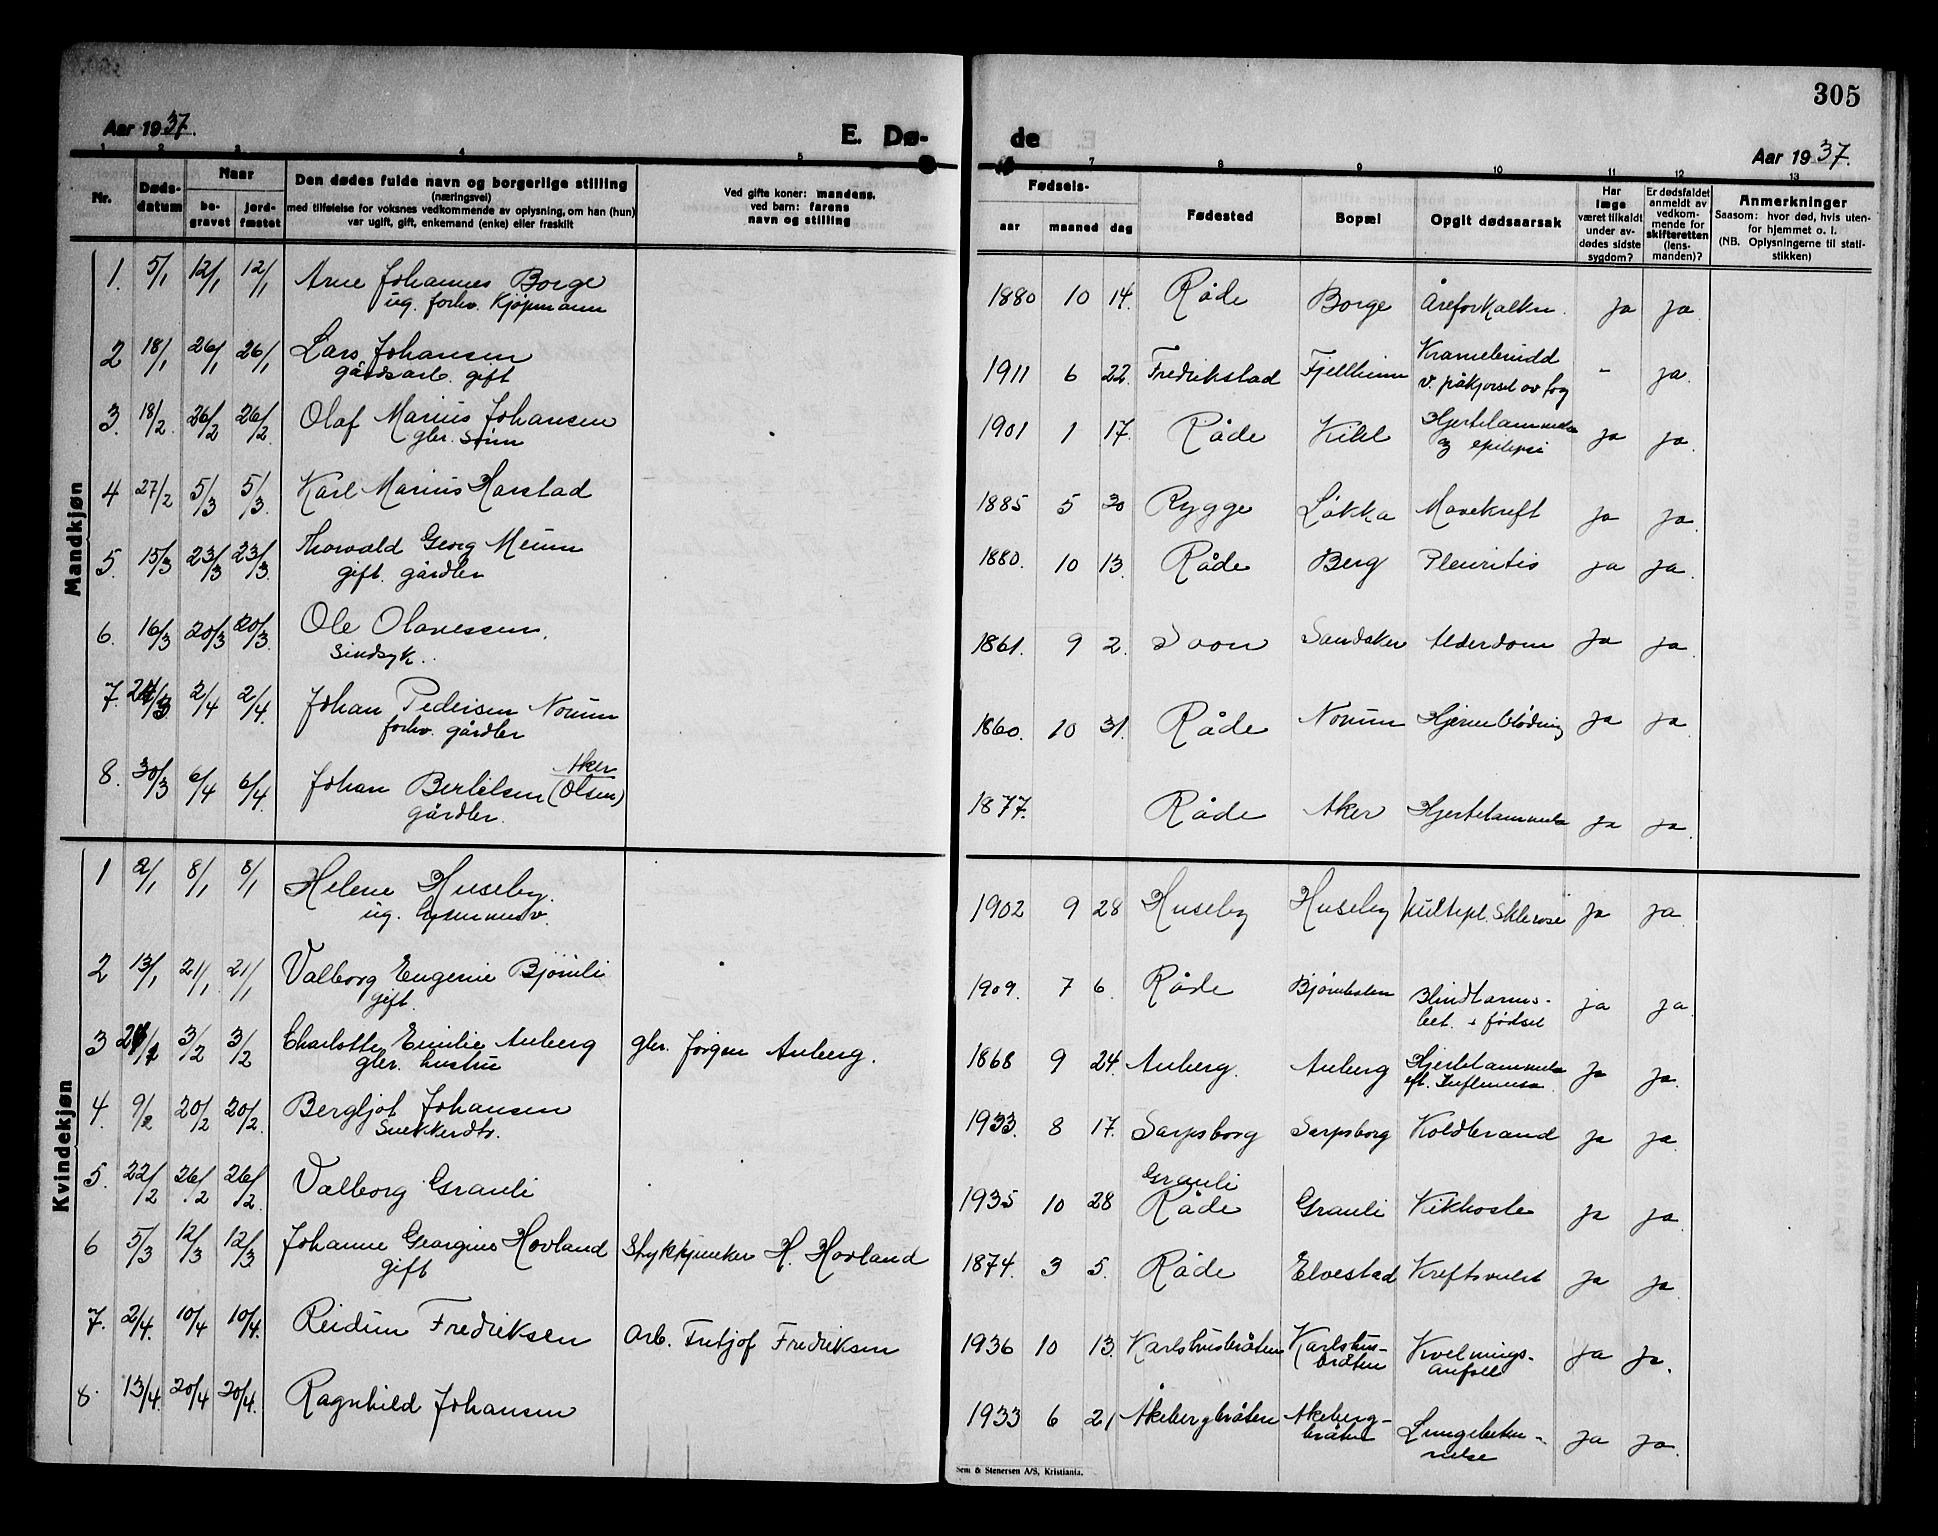 305
Aar 1937.
E. Dø-
de
Aar 1937.
1 2 3. 4 5 7 8 9 10 11 12 13
Nr.
Døds-
datum
Naar
be-
gravet
jord-
fæstet
Den dødes fulde navn og borgerlige stilling
(næringsvei)
med tilføielse for voksnes vedkommende av oplysning, om han (hun)
var ugift, gift, enkemand (enke) eller fraskilt
Ved gifte koner: mandens,
ved barn: farens
navn og stilling
Fødsels-
aar maaned dag
Fødested
Bopæl
Opgit dødsaarsak
Har
læge
været tilkaldt
under av-
dødes sidste
sygdom?
Er dødsfaldet
anmeldt av
vedkom-
mende for
skifteretten
(lens-
manden)?
Anmerkninger
Saasom: hvor død, hvis uten-
for hjemmet o. l.
(NB. Oplysningerne til stati-
stikken)
Mandkjøn
1. 5/1 12/1 12/1 Arne Johannes Borge 1880 10 14. Råde Borge Åreforkalkn. ja ja
ug. forhv. Kjøpmann
2 18/1 26/1 26/1 Lars Johansen 1911 6 22. Fredrikstad Fjellheim Kraniebrudd - ja.
gårdsarb. gift v. påkjørsel av tog
3. 18/2 26/2 26/2 Olaf Marius Johansen 1901 1 17. Råde Kihl Hjertelammelse ja ja.
gbr. sønn og epilepsi
4 27/2 5/3 5/3. Karl Marius Harstad 1885 5 30 Rygge Løkka Mavekreft ja ja.
5. 15/3 23/3 23/3. Thorvald Georg Meum 1880. 10 13. Råde Berg Pleuritis ja ja.
gift. gårdbr
6. 16/3 20/3 20/3. Ole Olavessen. 1861. 9 2. Soon Sandaker Alderdom ja ja.
sindsyk.
7. 2/4 2/4. Johan Pedersen Norum 1860. 10 31. Råde Norum Hjerneblødning ja ja
forhv. gårdbr
8. 30/3 6/4 6/4. Johan Bertelsen (Olsen) Aker 1877. Råde Aker Hjertelammelse ja ja.
gårdbr.
Kvindekjøn
1 2/1 8/1 8/1 Helene Huseby. 1902 9 28 Huseby Huseby Multipl. Sklerose ja ja.
ug. hjemmev.
2 13/1 21/1 21/1 Valborg Eugenie Bjørnli 1909. 7 6. Råde Blindtarms- ja ja.
gift. bet. + fødsel
3 3/2 3/2 Charlotte Emilie Anberg gbr. Jørgen Anberg. 1868 9 24. Anberg. Anberg Hjertelammelse ja ja.
gbr. hustru eft. Influensa
4. 9/2 20/2 20/2. Bergljot Johansen 1933. 8 17. Sarpsborg Sarpsborg Koldbrand ja ja.
Snekkerdtr.
5. 22/2 26/2 26/2. Valborg Grauli 1935 10 28 Grauli Råde Grauli Kikhoste ja ja.
6 5/3 12/3 12/3 Johanne Georgine Hovland Stykkjunker H. Hovland 1874. 3 5. Råde Elvestad Kreftsvulst ja ja.
gift
7. 2/4. 10/4 10/4. Reidun Fredriksen Arb. Fritjof Fredriksen 1936 10 13. Karlshusbråten Karlshus-bråten Kvelnings-anfall ja ja.
8. 13/4. 20/4 20/4. Ragnhild Johansen 1933 6 21 Åkebergbråten Åkeberg-bråten Lungebeten-nelse ja ja.
Sem & Stenersen A/S, Kristiania.